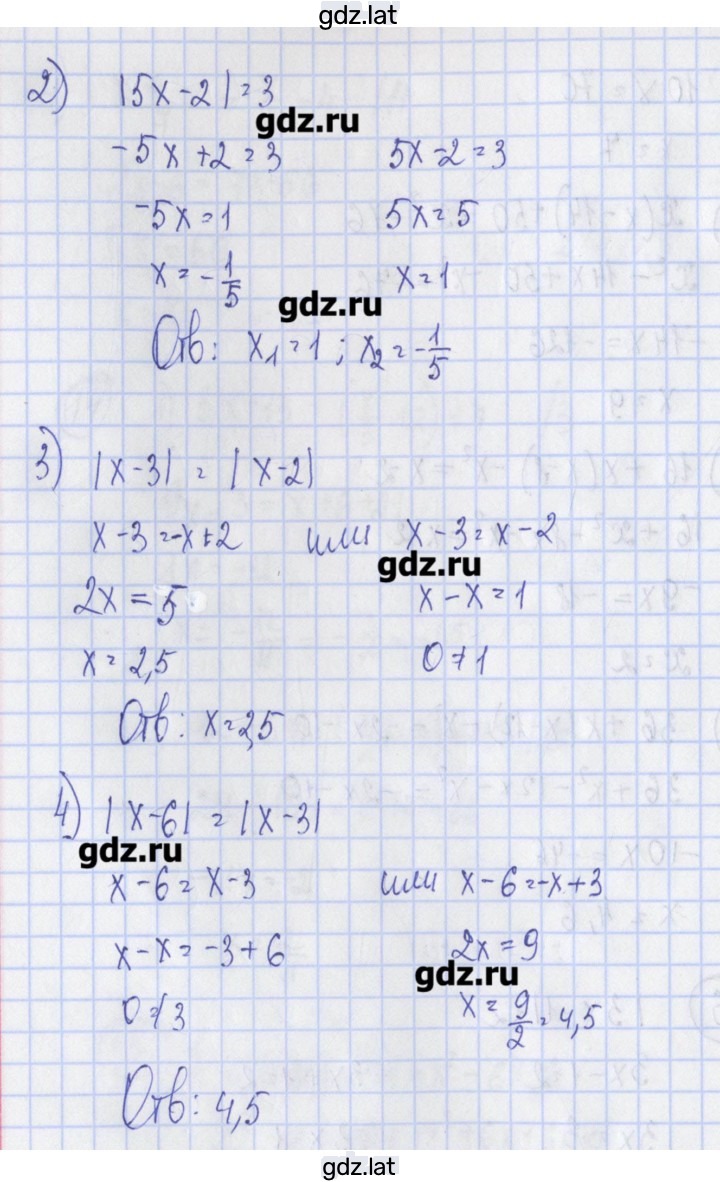 gdz.lat
2) |5x-2|=3
gdz.ru
-5x+2=3 5x-2=3
-5x=1 5x=5
x=-1/5 x=1
gdz.ru
Отв: x₁=1; x₂=-1/5
3) |x-3| = |x-2|
x-3=-x+2 или x-3=x-2
gdz.ru
2x=5 x-x=1
x=2,5 0≠1
Отв: x=2,5
4) |x-6| = |x-3|
gdz.ru
x-6=x-3 или x-6=-x+3
x-x=-3+6 2x=9
gdz.ru
0≠3 x=9/2=4,5
Отв: 4,5
gdz.lat